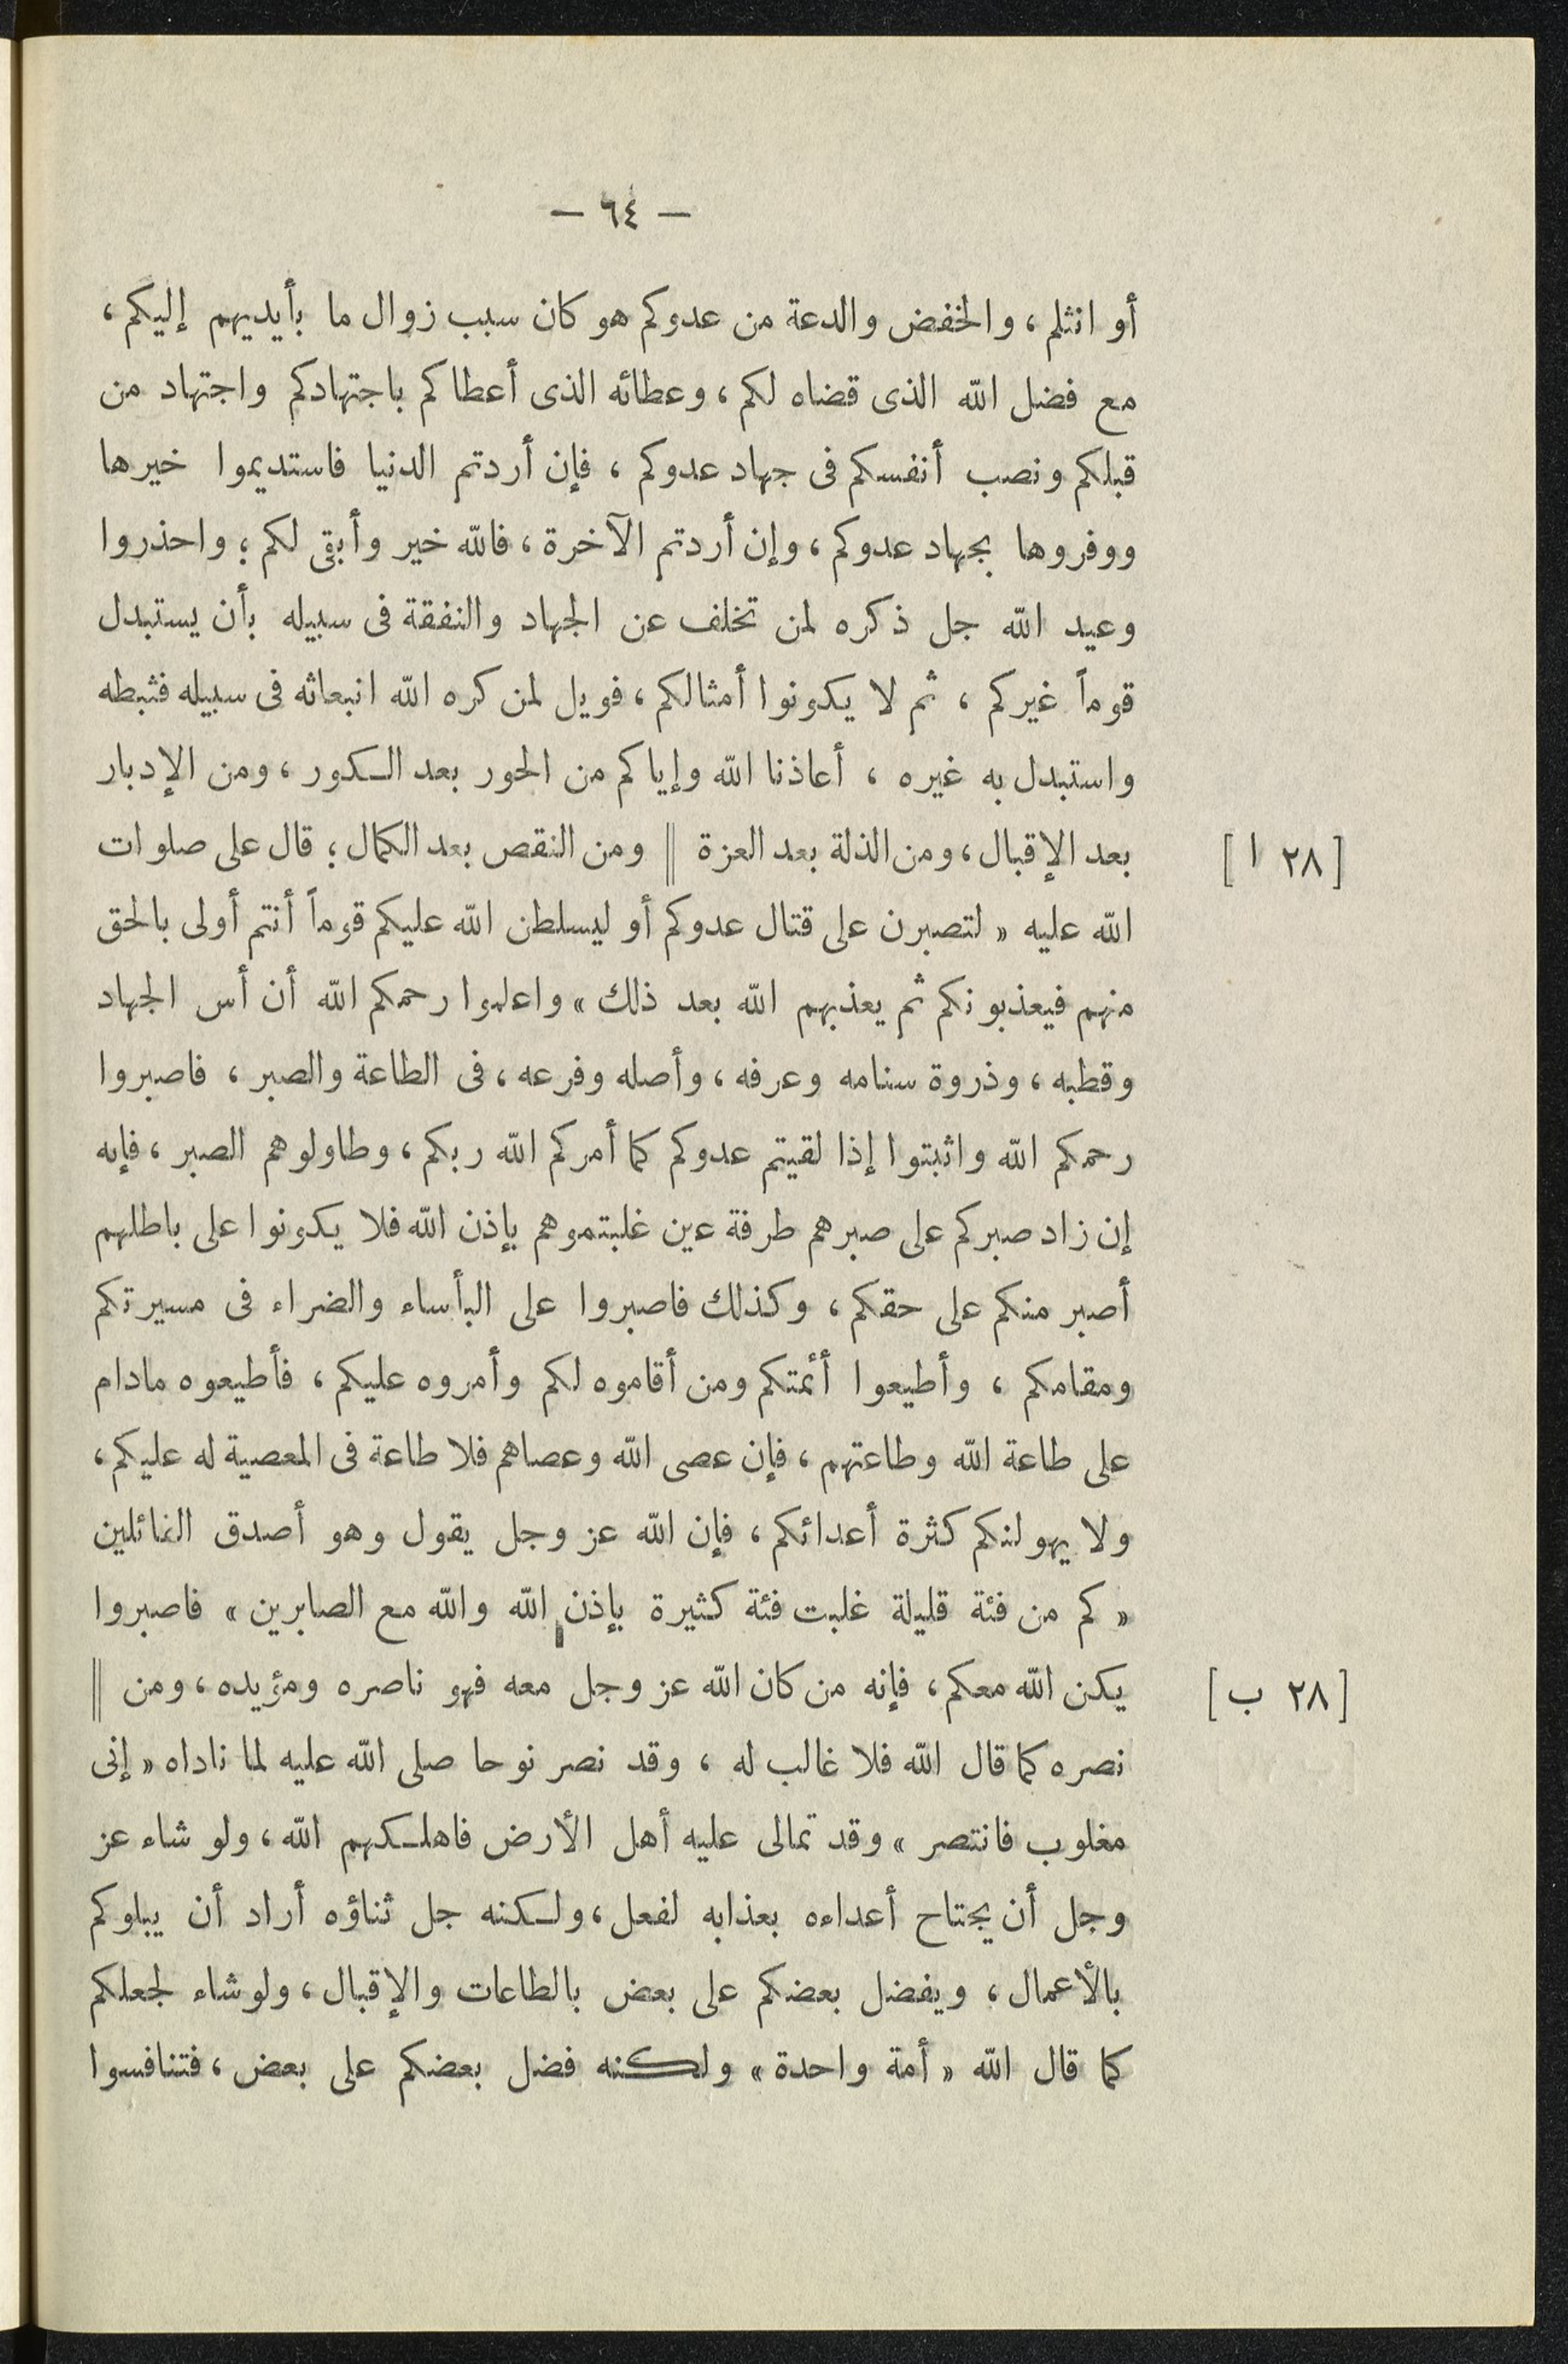 — ٦٤ —
أو انثلم، والخفض والدعة من عدوكم هو كان سبب زوال ما بأيديهم إليكم،
مع فضل الله الذى قضاه لكم، وعطائه الذى أعطاكم باجتهادكم واجتهاد من
قبلكم ونصب أنفسكم فى جهاد عدوكم، فإن أردتم الدنيا فاستديموا خيرها
ووفروها بجهاد عدوكم، وإن أردتم الآخرة، فالله خير وأبقى لكم؛ واحذروا
وعيد الله جل ذكره لمن تخلف عن الجهاد والنفقة فى سبيله بأن يستبدل
قوماً غيركم، ثم لا يكونوا أمثالكم، فويل لمن كره الله انبعاثه فى سبيله فثبطه
واستبدل به غيره، أعاذنا الله وإياكم من الحور بعد الكور، ومن الإدبار
[٢٨ ا] بعد الإقبال، ومن الذلة بعد العزة || ومن النقص بعد الكمال؛ قال على صلوات
الله عليه «لتصبرن على قتال عدوكم أو ليسلطن الله عليكم قوماً أنتم أولى بالحق
منهم فيعذبونكم ثم يعذبهم الله بعد ذلك» واعلموا رحمكم الله أن أس الجهاد
وقطبه، وذروة سنامه وعرفه، وأصله وفرعه، فى الطاعة والصبر، فاصبروا
رحمكم الله واثبتوا إذا لقيتم عدوكم كما أمركم الله ربكم، وطاولوهم الصبر، فإنه
إن زاد صبركم على صبرهم طرفة عين غلبتموهم بإذن الله فلا يكونوا على باطلهم
أصبر منكم على حقكم، وكذلك فاصبروا على البأساء والضراء فى مسيرتكم
ومقامكم، وأطيعوا أئمتكم ومن أقاموه لكم وأمروه عليكم، فأطيعوه مادام
على طاعة الله وطاعتهم، فإن عصى الله وعصاهم فلا طاعة فى المعصية له عليكم،
ولا يهولنكم كثرة أعدائكم، فإن الله عز وجل يقول وهو أصدق القائلين
«كم من فئة قليلة غلبت فئة كثيرة بإذن الله والله مع الصابرين» فاصبروا
[٢٨ ب] يكن الله معكم، فإنه من كان الله عز وجل معه فهو ناصره ومؤيده، ومن ||
نصره كما قال الله فلا غالب له، وقد نصر نوحا صلى الله عليه لما ناداه «إنى
مغلوب فانتصر» وقد تمالى عليه أهل الأرض فاهلكهم الله، ولو شاء عز
وجل أن يجتاح أعداءه بعذابه لفعل، ولكنه جل ثناؤه أراد أن يبلوكم
بالأعمال، ويفضل بعضكم على بعض بالطاعات والإقبال، ولو شاء لجعلكم
كما قال الله «أمة واحدة» ولكنه فضل بعضكم على بعض، فتنافسوا